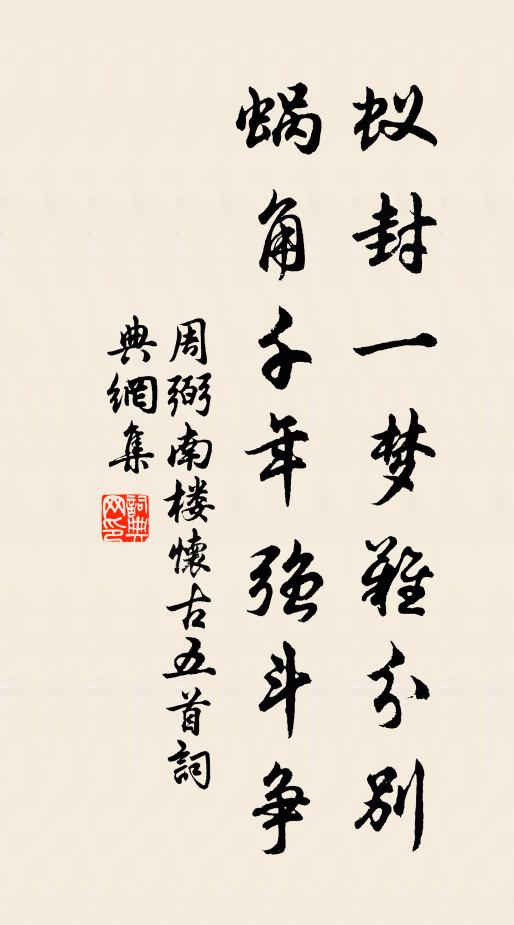 蚁封一梦难分别
蜗角千年强斗争
周弼南楼懷古五首詞
典網集
詞典
网印